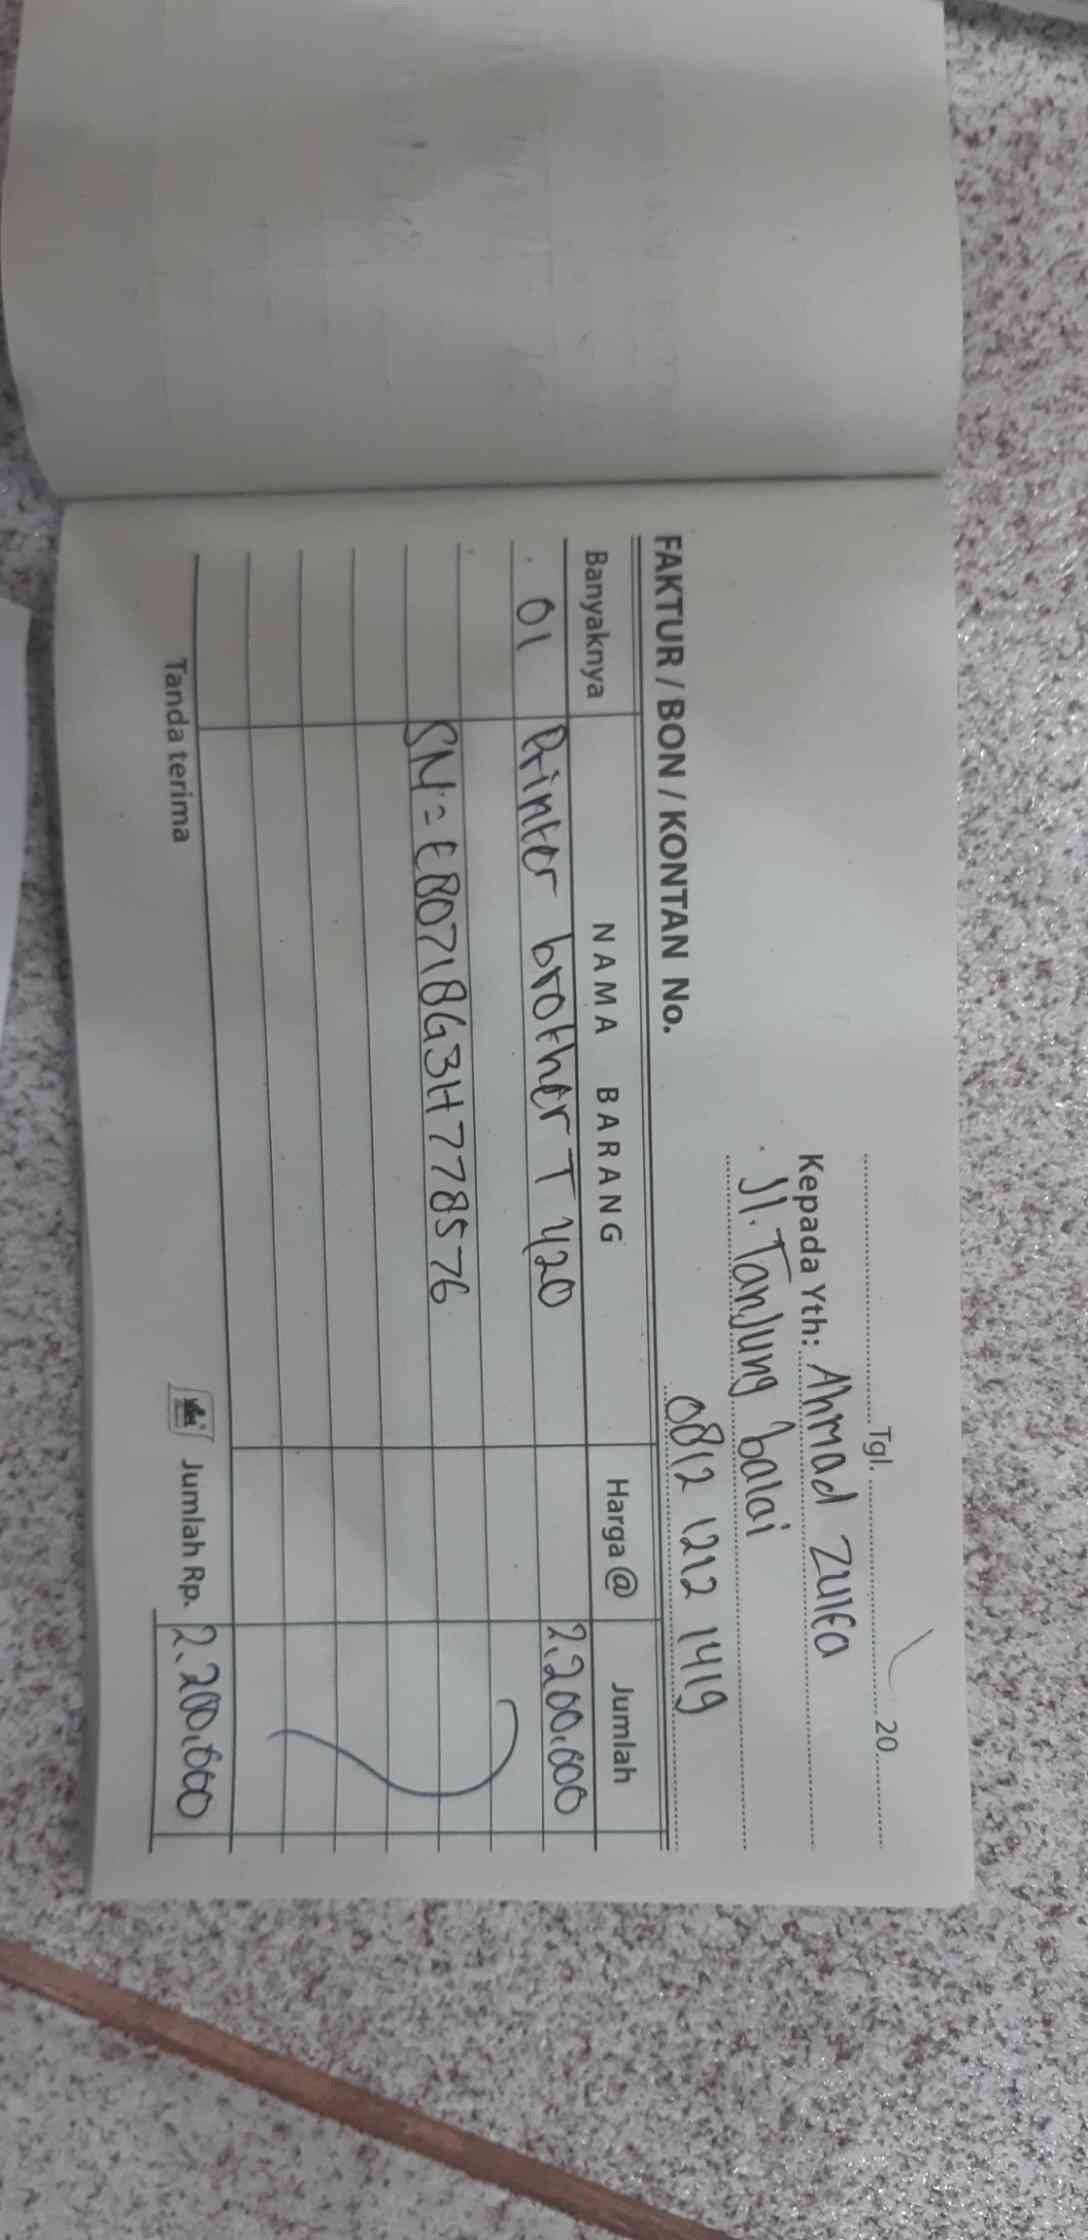 Tgl. 20
Kepada Yth: Ahmad Zulfa
Jl. Tanjung balai
0812 1212 1419
FAKTUR / BON / KONTAN No.
Banyaknya NAMA BARANG Harga @ Jumlah
01 Printer brother T420 2.200.000
SN = E80718G3H778576
Tanda terima Jumlah Rp. 2.200.000